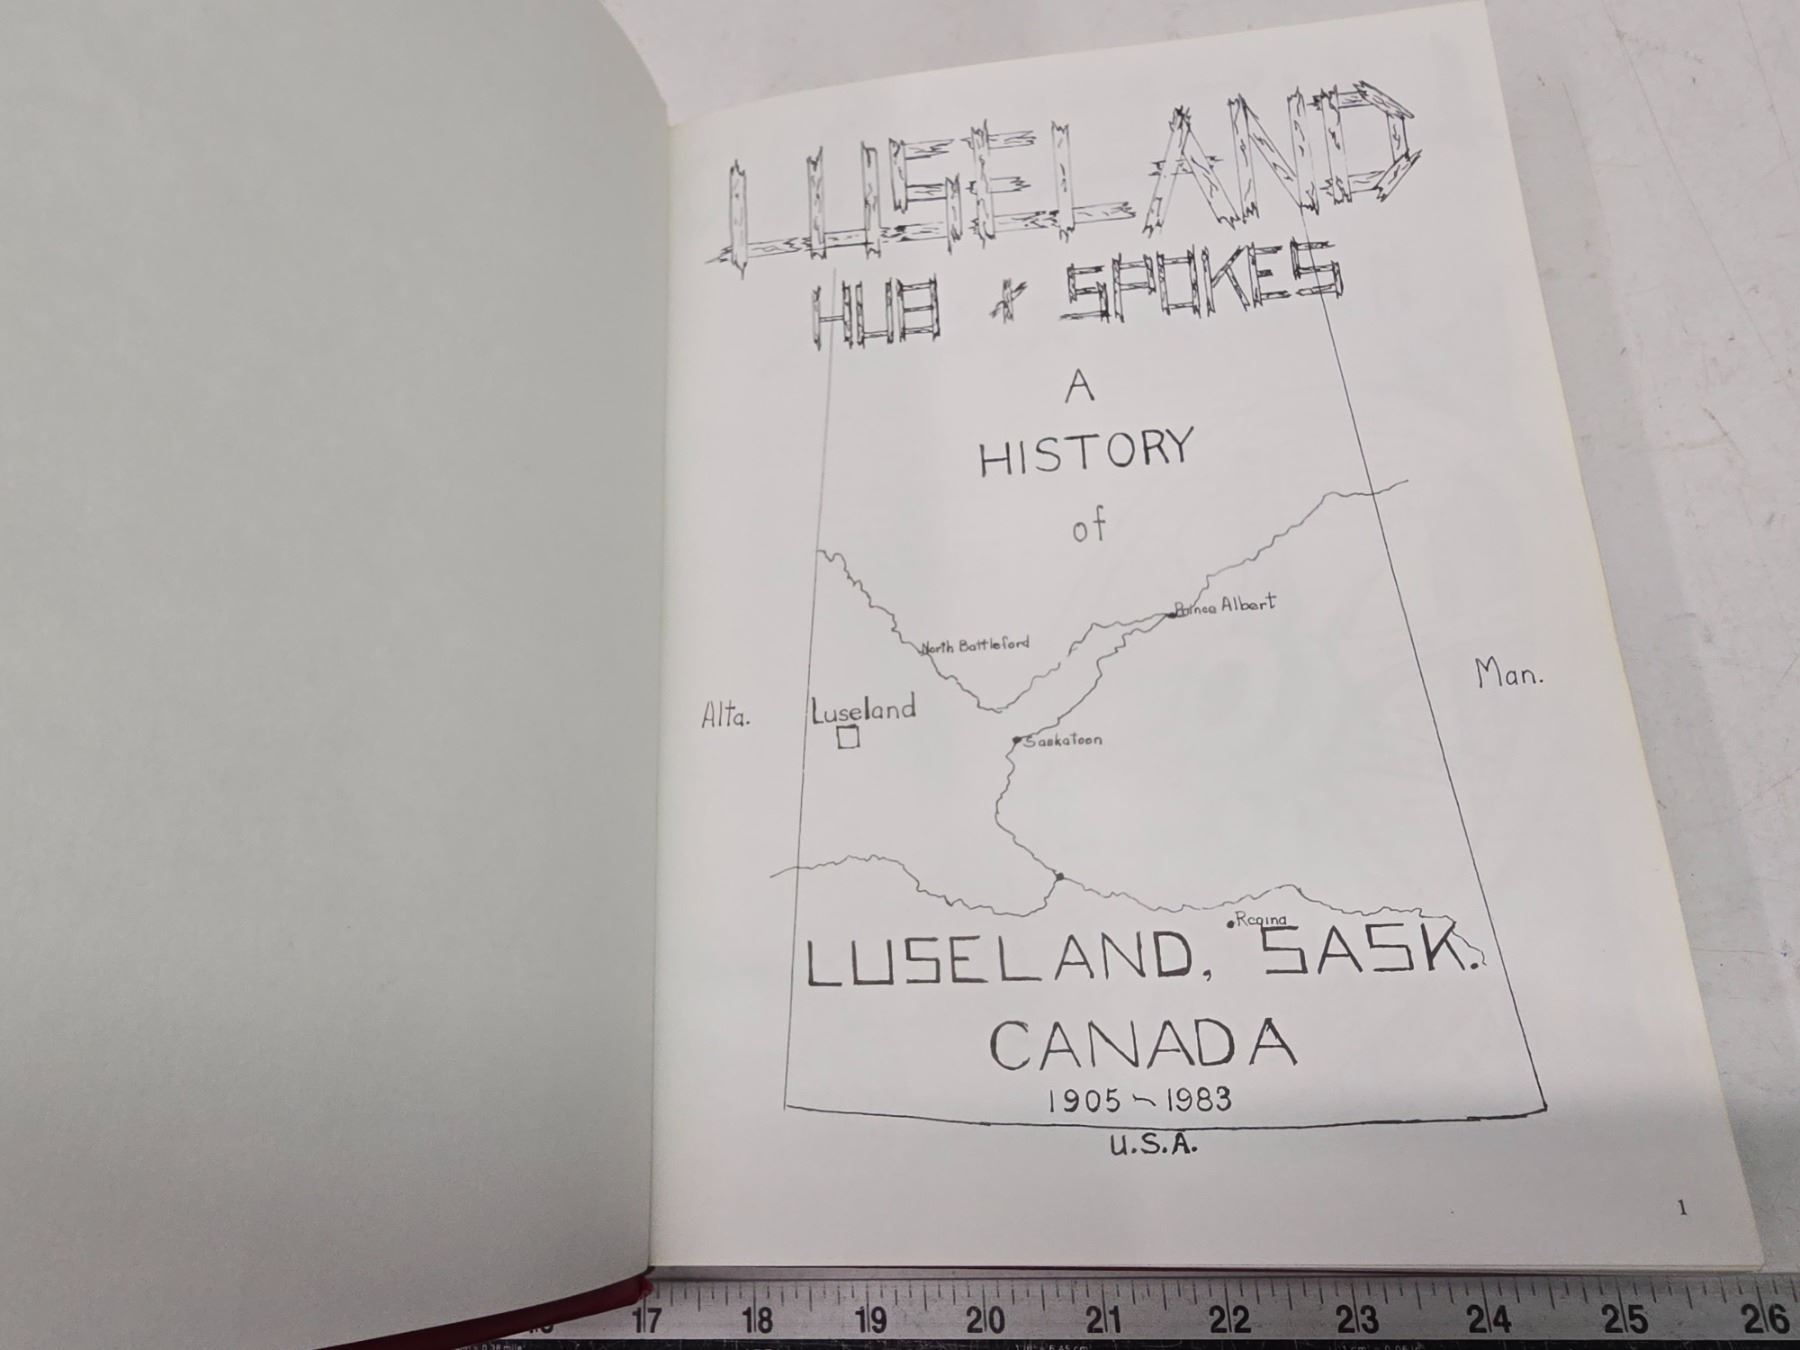 LUSELAND
HUB & SPOKES
A
HISTORY
of
Prince Albert
North Battleford
Man.
Alta.
Luseland
Saskatoon
Regina
LUSELAND, SASK.
CANADA
1905~1983
U.S.A.
1
17 18 19 20 21 22 23 24 25 26